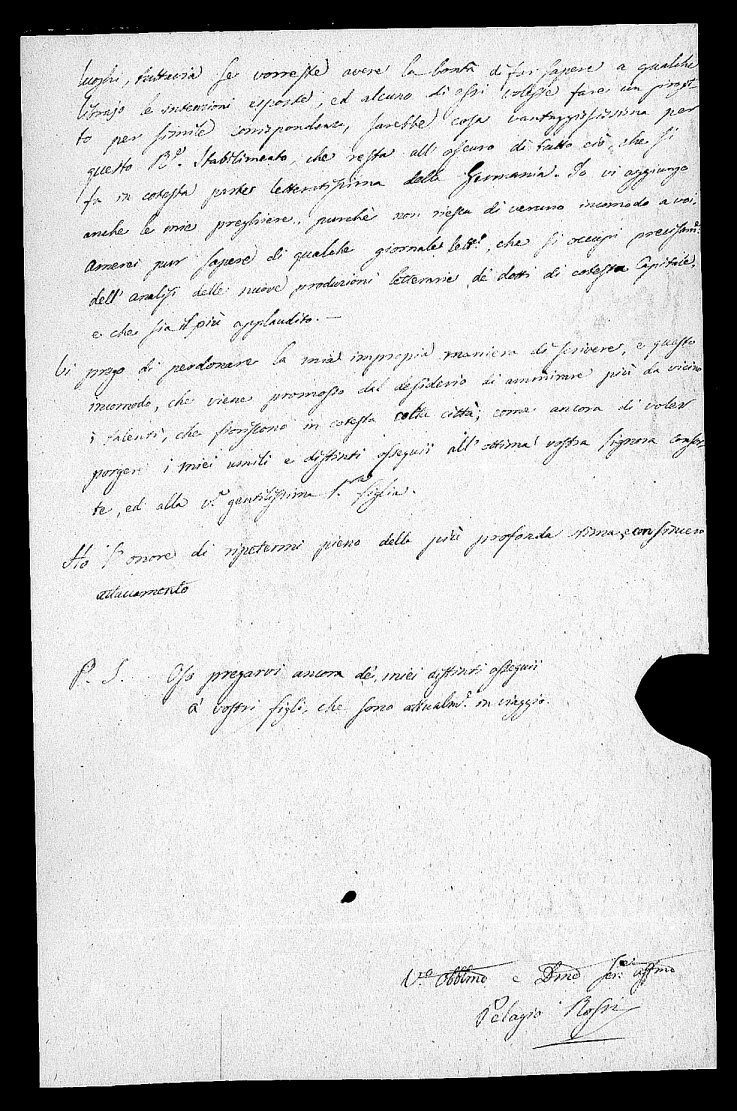 luoghi, tuttavia se vorreste avere la bontà di far sapere a qualche
librajo le intenzioni esposte, ed alcuno di essi volesse farei un proget-
to per simile corrispondenza, sarebbe cosa vantaggiosissima per
questo R.º Stabilimento, che resta all' oscuro di tutto ciò, che si
fa in cotesta parte letteratissima della Germania. Io vi aggiungo
anche le mie preghiere, purchè non riesca di veruno incomodo a voi.
Amerei pur sapere di qualche giornale lett.º, che si occupi precisam.e
dell' analisi delle nuove produzioni letterarie de' dotti di cotesta Capitale,
e che sia il più applaudito. —
Vi prego di perdonare la mia impropia maniera di scrivere, e questo
incomodo, che viene promosso dal desiderio di ammirare più da vicino
i talenti, che fioriscono in cotesta colta città; come ancora di voler
porgere i miei umili e distinti ossequii all' ottima vostra Signora consor-
te, ed alla v.ª gentilissima S.ra figlia.
Ho l' onore di ripetermi pieno della più profonda stima, e con sincero
attaccamento
P. S. Oso pregarvi ancora de' miei distinti ossequii
a' vostri figli, che sono attualm.e in viaggio.
V.º Obblmo e Dmo Ser.e affmo
Pelagio Rossi